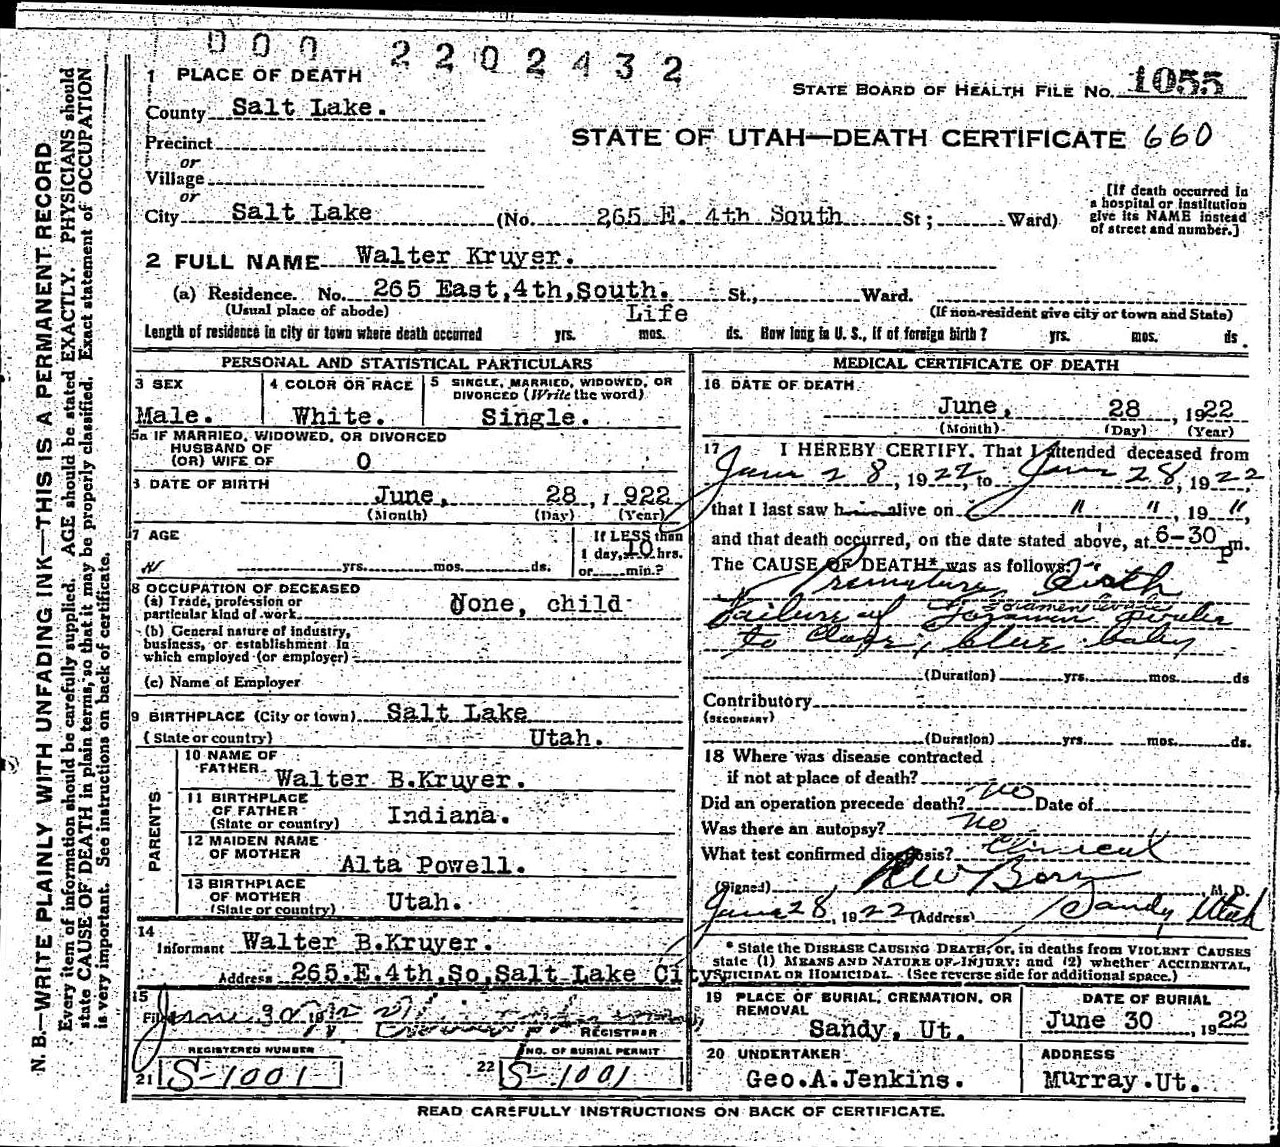 000 2202432
1 PLACE OF DEATH
STATE BOARD OF HEALTH FILE NO. 1055
County Salt Lake.
STATE OF UTAH—DEATH CERTIFICATE 660
Precinct
or
Village
or
City Salt Lake (No. 265 E. 4th South St; Ward)
[If death occurred in
a hospital or institution
give its NAME instead
of street and number.]
2 FULL NAME Walter Kruyer.
(a) Residence. No. 265 East,4th,South. St., Ward.
(Usual place of abode) (If non-resident give city or town and State)
Life
Length of residence in city or town where death occurred yrs. mos. ds. How long in U. S., if of foreign birth? yrs. mos. ds.
PERSONAL AND STATISTICAL PARTICULARS
3 SEX
Male.
4 COLOR OR RACE
White.
5 SINGLE, MARRIED, WIDOWED, OR
DIVORCED (Write the word)
Single.
5a IF MARRIED, WIDOWED, OR DIVORCED
HUSBAND OF
(OR) WIFE OF 0
6 DATE OF BIRTH
June, 28 , 1922
(Month) (Day) (Year)
7 AGE
yrs. mos. ds.
If LESS than
1 day, 10 hrs.
or min.?
8 OCCUPATION OF DECEASED
(a) Trade, profession or
particular kind of work None, child
(b) General nature of industry,
business, or establishment in
which employed (or employer)
(c) Name of Employer
9 BIRTHPLACE (City or town) Salt Lake
(State or country) Utah.
PARENTS
10 NAME OF
FATHER Walter B.Kruyer.
11 BIRTHPLACE
OF FATHER
(State or country) Indiana.
12 MAIDEN NAME
OF MOTHER Alta Powell.
13 BIRTHPLACE
OF MOTHER
(State or country) Utah.
14
Informant Walter B.Kruyer.
Address 265.E.4th,So,Salt Lake City
15
Filed June 30 1922
REGISTRAR
REGISTERED NUMBER
21 S-1001
NO. OF BURIAL PERMIT
22 S-1001
MEDICAL CERTIFICATE OF DEATH
16 DATE OF DEATH
June, 28 , 1922
(Month) (Day) (Year)
17 I HEREBY CERTIFY, That I attended deceased from
June 28, 1922, to June 28, 1922,
that I last saw him alive on " ", 19 ",
and that death occurred, on the date stated above, at 6-30 pm.
The CAUSE OF DEATH* was as follows:
Premature birth
foramen ovale
failure of foramen
to close, blue baby
(Duration) yrs. mos. ds
Contributory
(SECONDARY)
(Duration) yrs. mos. ds.
18 Where was disease contracted
if not at place of death?
Did an operation precede death? no Date of
Was there an autopsy? no
What test confirmed diagnosis? Clinical
(Signed) , M. D.
June 28, 1922 (Address) Sandy Utah
* State the DISEASE CAUSING DEATH, or, in deaths from VIOLENT CAUSES
state (1) MEANS AND NATURE OF INJURY: and (2) whether ACCIDENTAL,
SUICIDAL OR HOMICIDAL. (See reverse side for additional space.)
19 PLACE OF BURIAL, CREMATION, OR
REMOVAL
Sandy, Ut.
DATE OF BURIAL
June 30 , 1922
20 UNDERTAKER
Geo.A.Jenkins.
ADDRESS
Murray.Ut.
READ CAREFULLY INSTRUCTIONS ON BACK OF CERTIFICATE.
N. B.—WRITE PLAINLY WITH UNFADING INK—THIS IS A PERMANENT RECORD
Every item of information should be carefully supplied. AGE should be stated EXACTLY. PHYSICIANS should
state CAUSE OF DEATH in plain terms, so that it may be properly classified. Exact statement of OCCUPATION
is very important. See instructions on back of certificate.